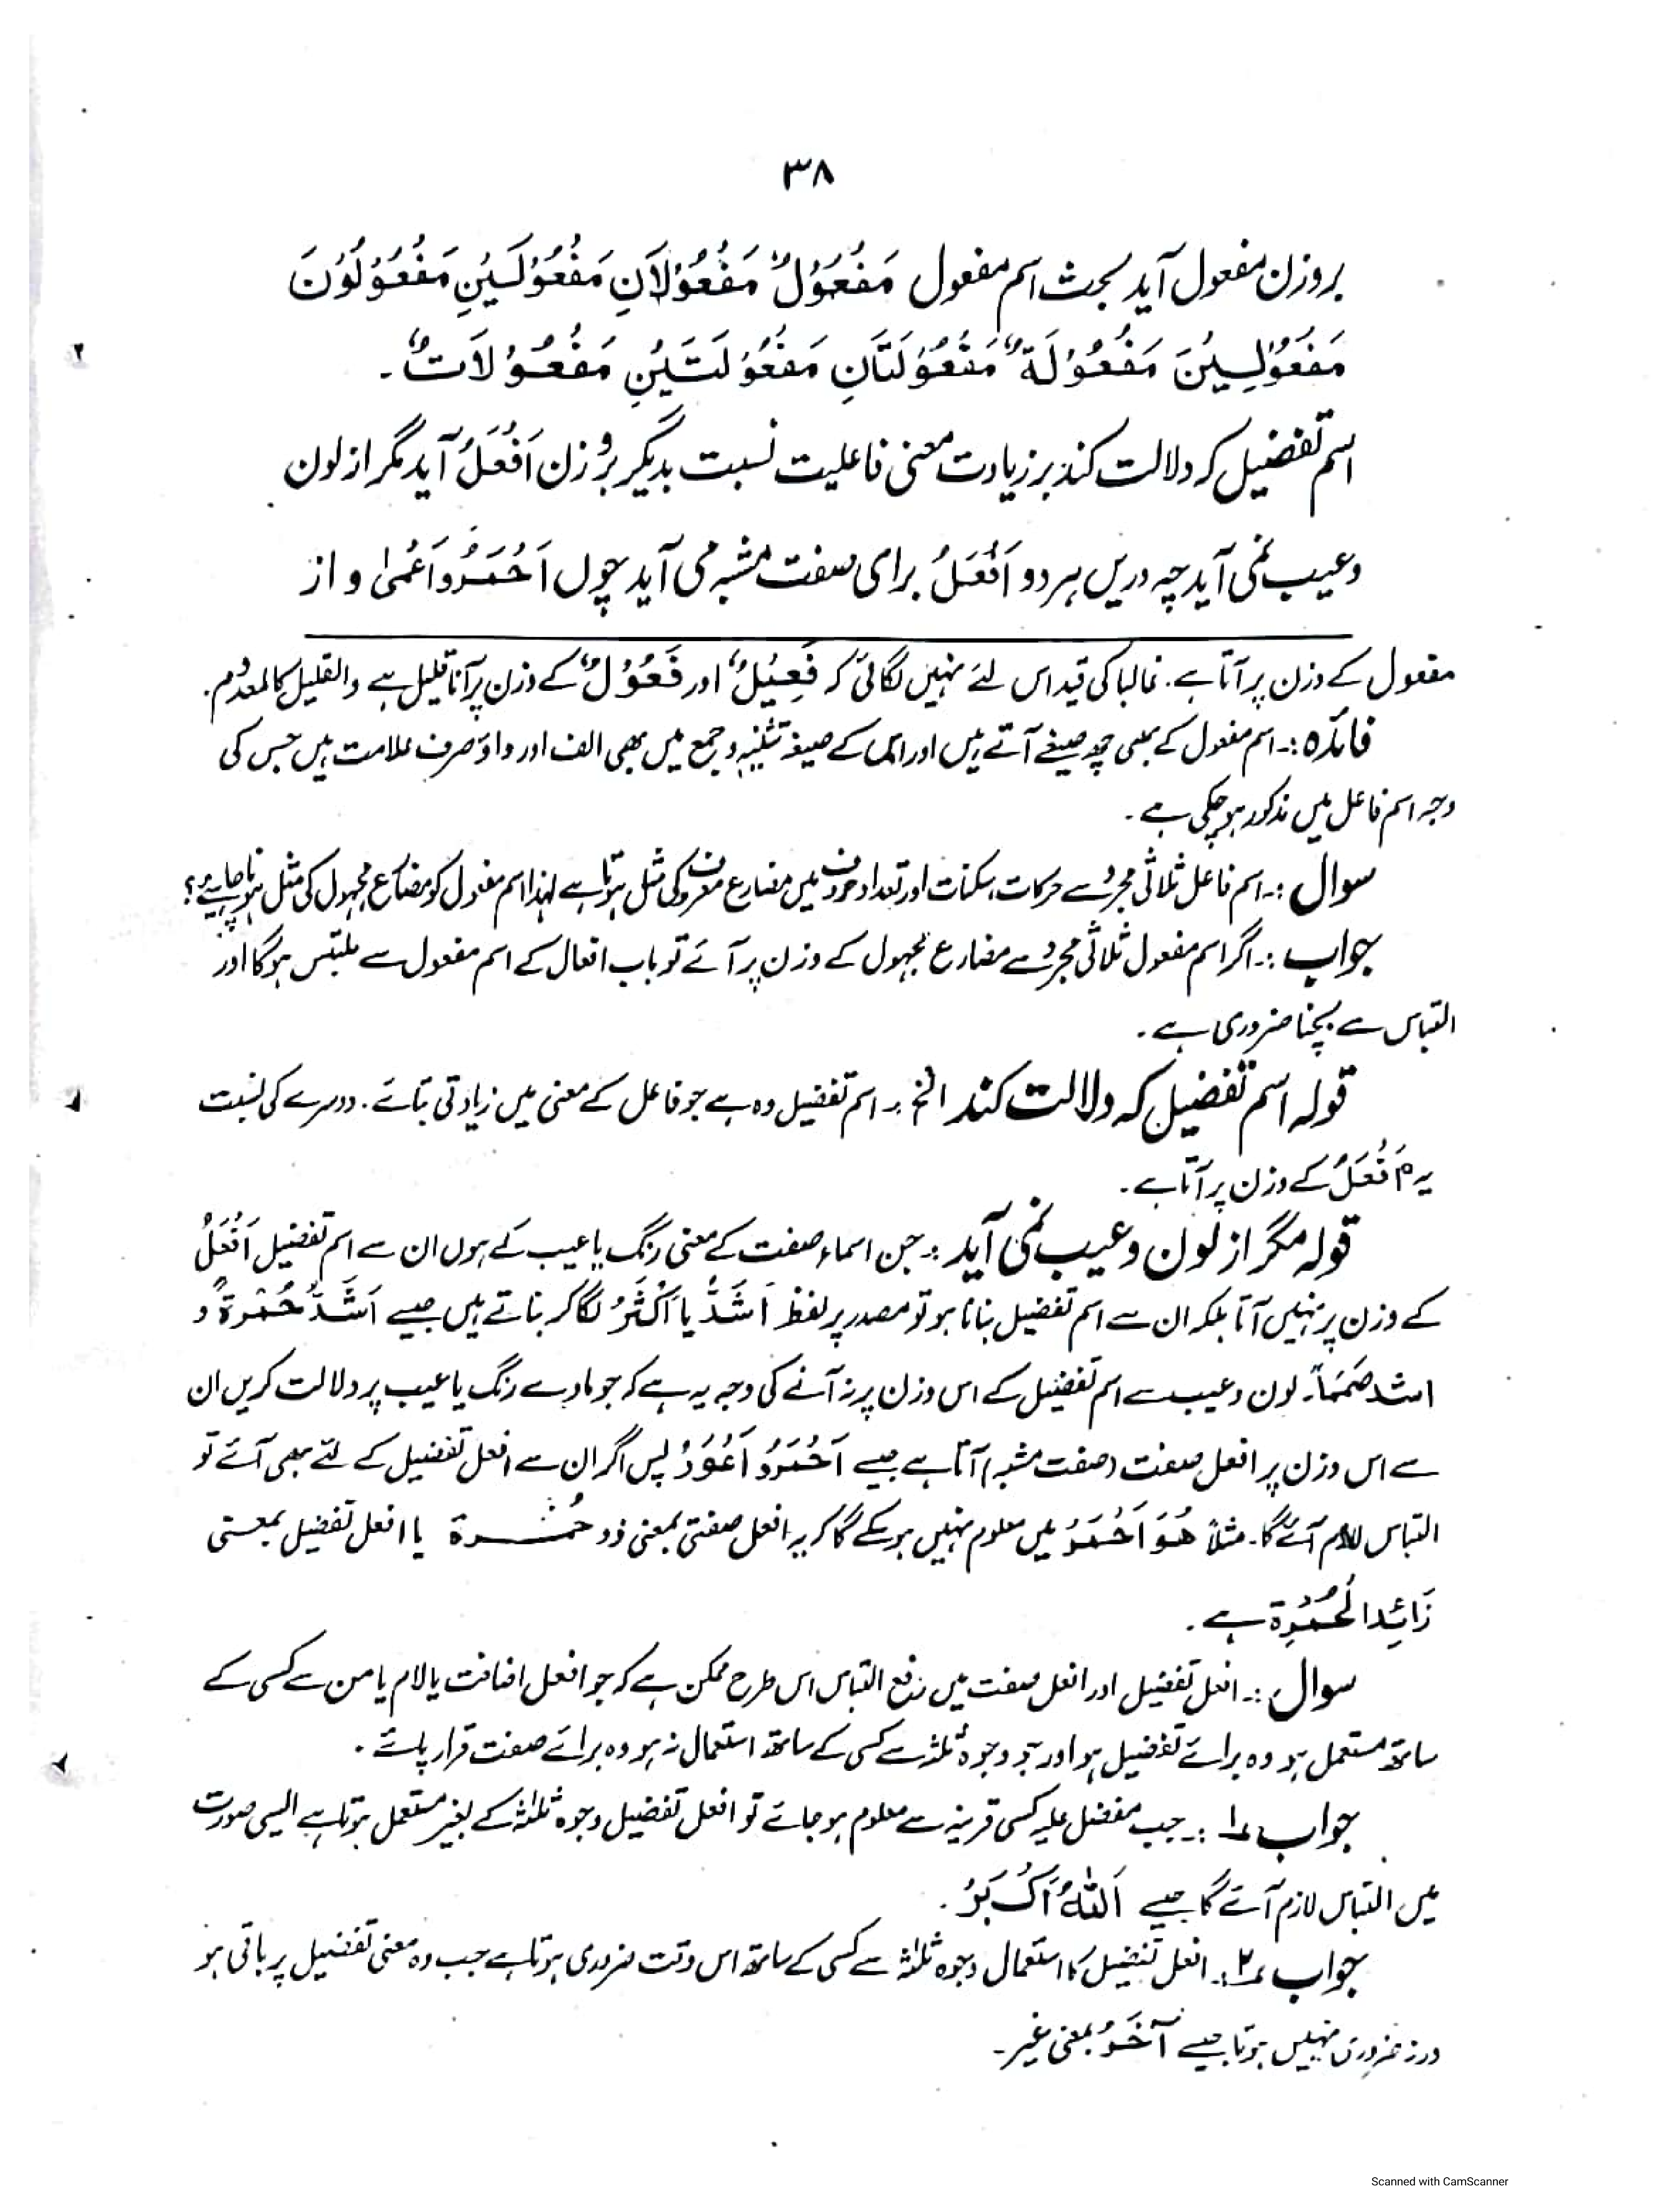 ۳۸
بروزن مفعول آید بحث اسم مفعول مَفْعُوْلٌ مَفْعُوْلَانِ مَفْعُوْلَيْنِ مَفْعُوْلُوْنَ
مَفْعُوْلِيْنَ مَفْعُوْلَةٌ مَفْعُوْلَتَانِ مَفْعُوْلَتَيْنِ مَفْعُوْلَاتٌ۔
اسم تفضیل کہ دلالت کند بر زیادت معنی فاعلیت نسبت بدیگر بروزن اَفْعَلُ آید مگر از لون
وعیب نمی آید چہ دریں ہر دو اَفْعَلُ برای صفت مشبہ می آید چوں اَحْمَرُ واَعْمٰی و از
مفعول کے وزن پر آتا ہے۔ غالبا کی قید اس لئے نہیں لگائی کہ فَعِيْلٌ اور فَعُوْلٌ کے وزن پر آنا قلیل ہے والقلیل کالمعدوم۔
فائدہ :۔ اسم مفعول کے بھی چھ صیغے آتے ہیں اور اس کے صیغہ تثنیہ و جمع میں بھی الف اور واو صرف علامت ہیں جس کی
وجہ اسم فاعل میں مذکور ہو چکی ہے۔
سوال :۔ اسم فاعل ثلاثی مجرد سے حرکات، سکنات اور تعداد حروف میں مضارع معروف کی مثل ہوتا ہے لہذا اسم مفعول کو مضارع مجہول کی مثل ہونا چاہیے؟
جواب :۔ اگر اسم مفعول ثلاثی مجرد سے مضارع مجہول کے وزن پر آئے تو باب افعال کے اسم مفعول سے ملتبس ہوگا اور
التباس سے بچنا ضروری ہے۔
قولہ اسم تفضیل کہ دلالت کند الخ :۔ اسم تفضیل وہ ہے جو فاعل کے معنی میں زیادتی بتائے۔ دوسرے کی نسبت
یہ اَفْعَلُ کے وزن پر آتا ہے۔
قولہ مگر از لون وعیب نمی آید :۔ جن اسماء صفت کے معنی رنگ یا عیب کے ہوں ان سے اسم تفضیل اَفْعَلُ
کے وزن پر نہیں آتا بلکہ ان سے اسم تفضیل بنانا ہو تو مصدر پر لفظ اَشَدُّ یا اَکْثَرُ لگا کر بناتے ہیں جیسے اَشَدُّ حُمْرَةً و
اشد صَمَمًا۔ لون و عیب سے اسم تفضیل کے اس وزن پر نہ آنے کی وجہ یہ ہے کہ جو مادے رنگ یا عیب پر دلالت کریں ان
سے اس وزن پر افعل صفت (صفت مشبہ) آتا ہے جیسے اَحْمَرُ اَعْوَرُ پس اگر ان سے افعل تفضیل کے لئے بھی آئے تو
التباس لازم آئے گا۔ مثلاً هُوَ اَحْمَرُ میں معلوم نہیں ہو سکے گا کہ یہ افعل صفتی بمعنی ذو حُمْرَة یا افعل تفضیل بمعنی
زَائِدُ الْحُمْرَةِ ہے۔
سوال :۔ افعل تفضیل اور افعل صفت میں رفع التباس اس طرح ممکن ہے کہ جو افعل اضافت یا لام یا من سے کسی کے
ساتھ مستعمل ہو وہ برائے تفضیل ہو اور جو وجوہ ثلثہ سے کسی کے ساتھ استعمال نہ ہو وہ برائے صفت قرار پائے۔
جواب ۱ :۔ جب مفضل علیہ کسی قرینہ سے معلوم ہو جائے تو افعل تفضیل وجوہ ثلثہ کے بغیر مستعمل ہوتا ہے ایسی صورت
میں التباس لازم آئے گا جیسے اَللّٰهُ اَكْبَرُ۔
جواب ۲ :۔ افعل تفضیل کا استعمال وجوہ ثلثہ سے کسی کے ساتھ اس وقت ضروری ہوتا ہے جب وہ معنی تفضیل پر باقی ہو
ورنہ ضروری نہیں ہوتا جیسے آخَرُ بمعنی غیر۔
Scanned with CamScanner